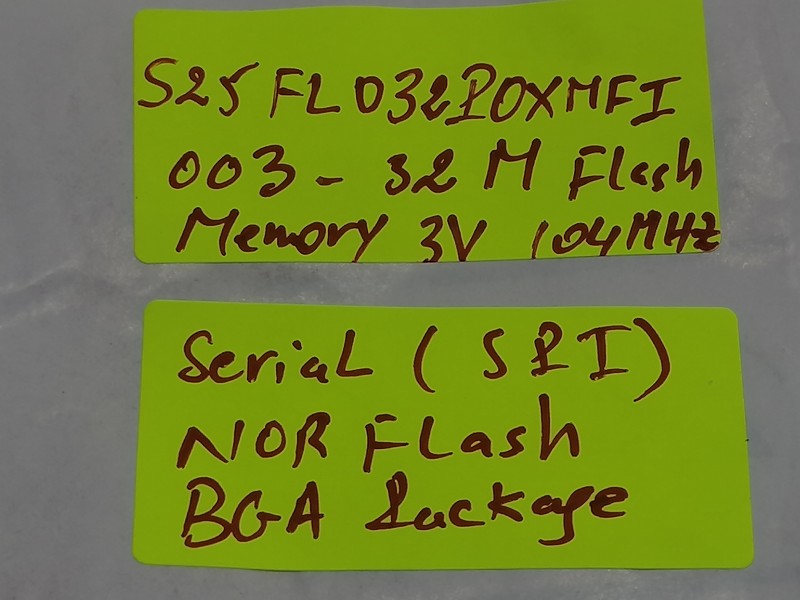 S25FL032P0XMFI
003 - 32M Flash
Memory 3V 104MHZ
Serial (SPI)
NOR Flash
BGA Package